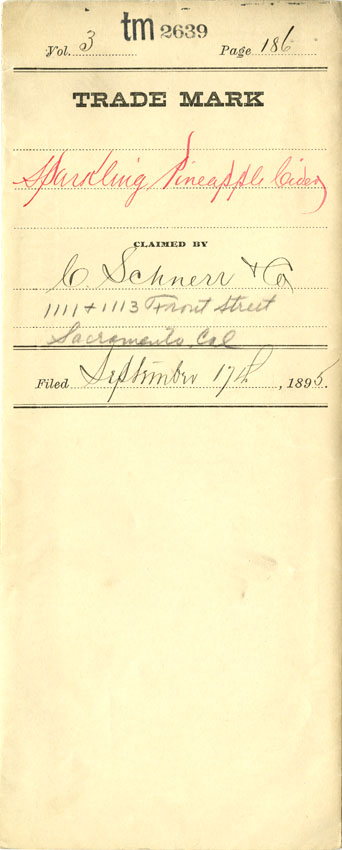 tm 2639
Vol. 3 Page 186
TRADE MARK
Sparkling Pineapple Cider
CLAIMED BY
C. Schnerr & Co
1111 + 1113 Front Street
Sacramento, Cal
Filed September 17th, 1895.